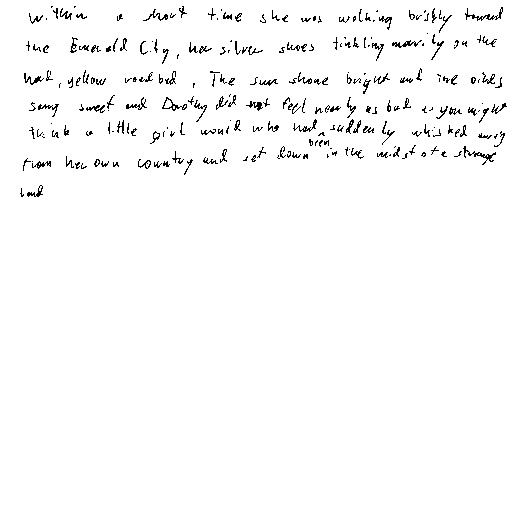 within a short time she was walking briskly toward
the Emerald City, her silver shoes tinkling merrily on the
hard, yellow roadbed, The sun shone bright and the birds
sang sweet and Dorothy did not feel nearly as bad as you might
think a little girl would who had been suddenly whisked away
from her own country and set down in the midst of a strange
land